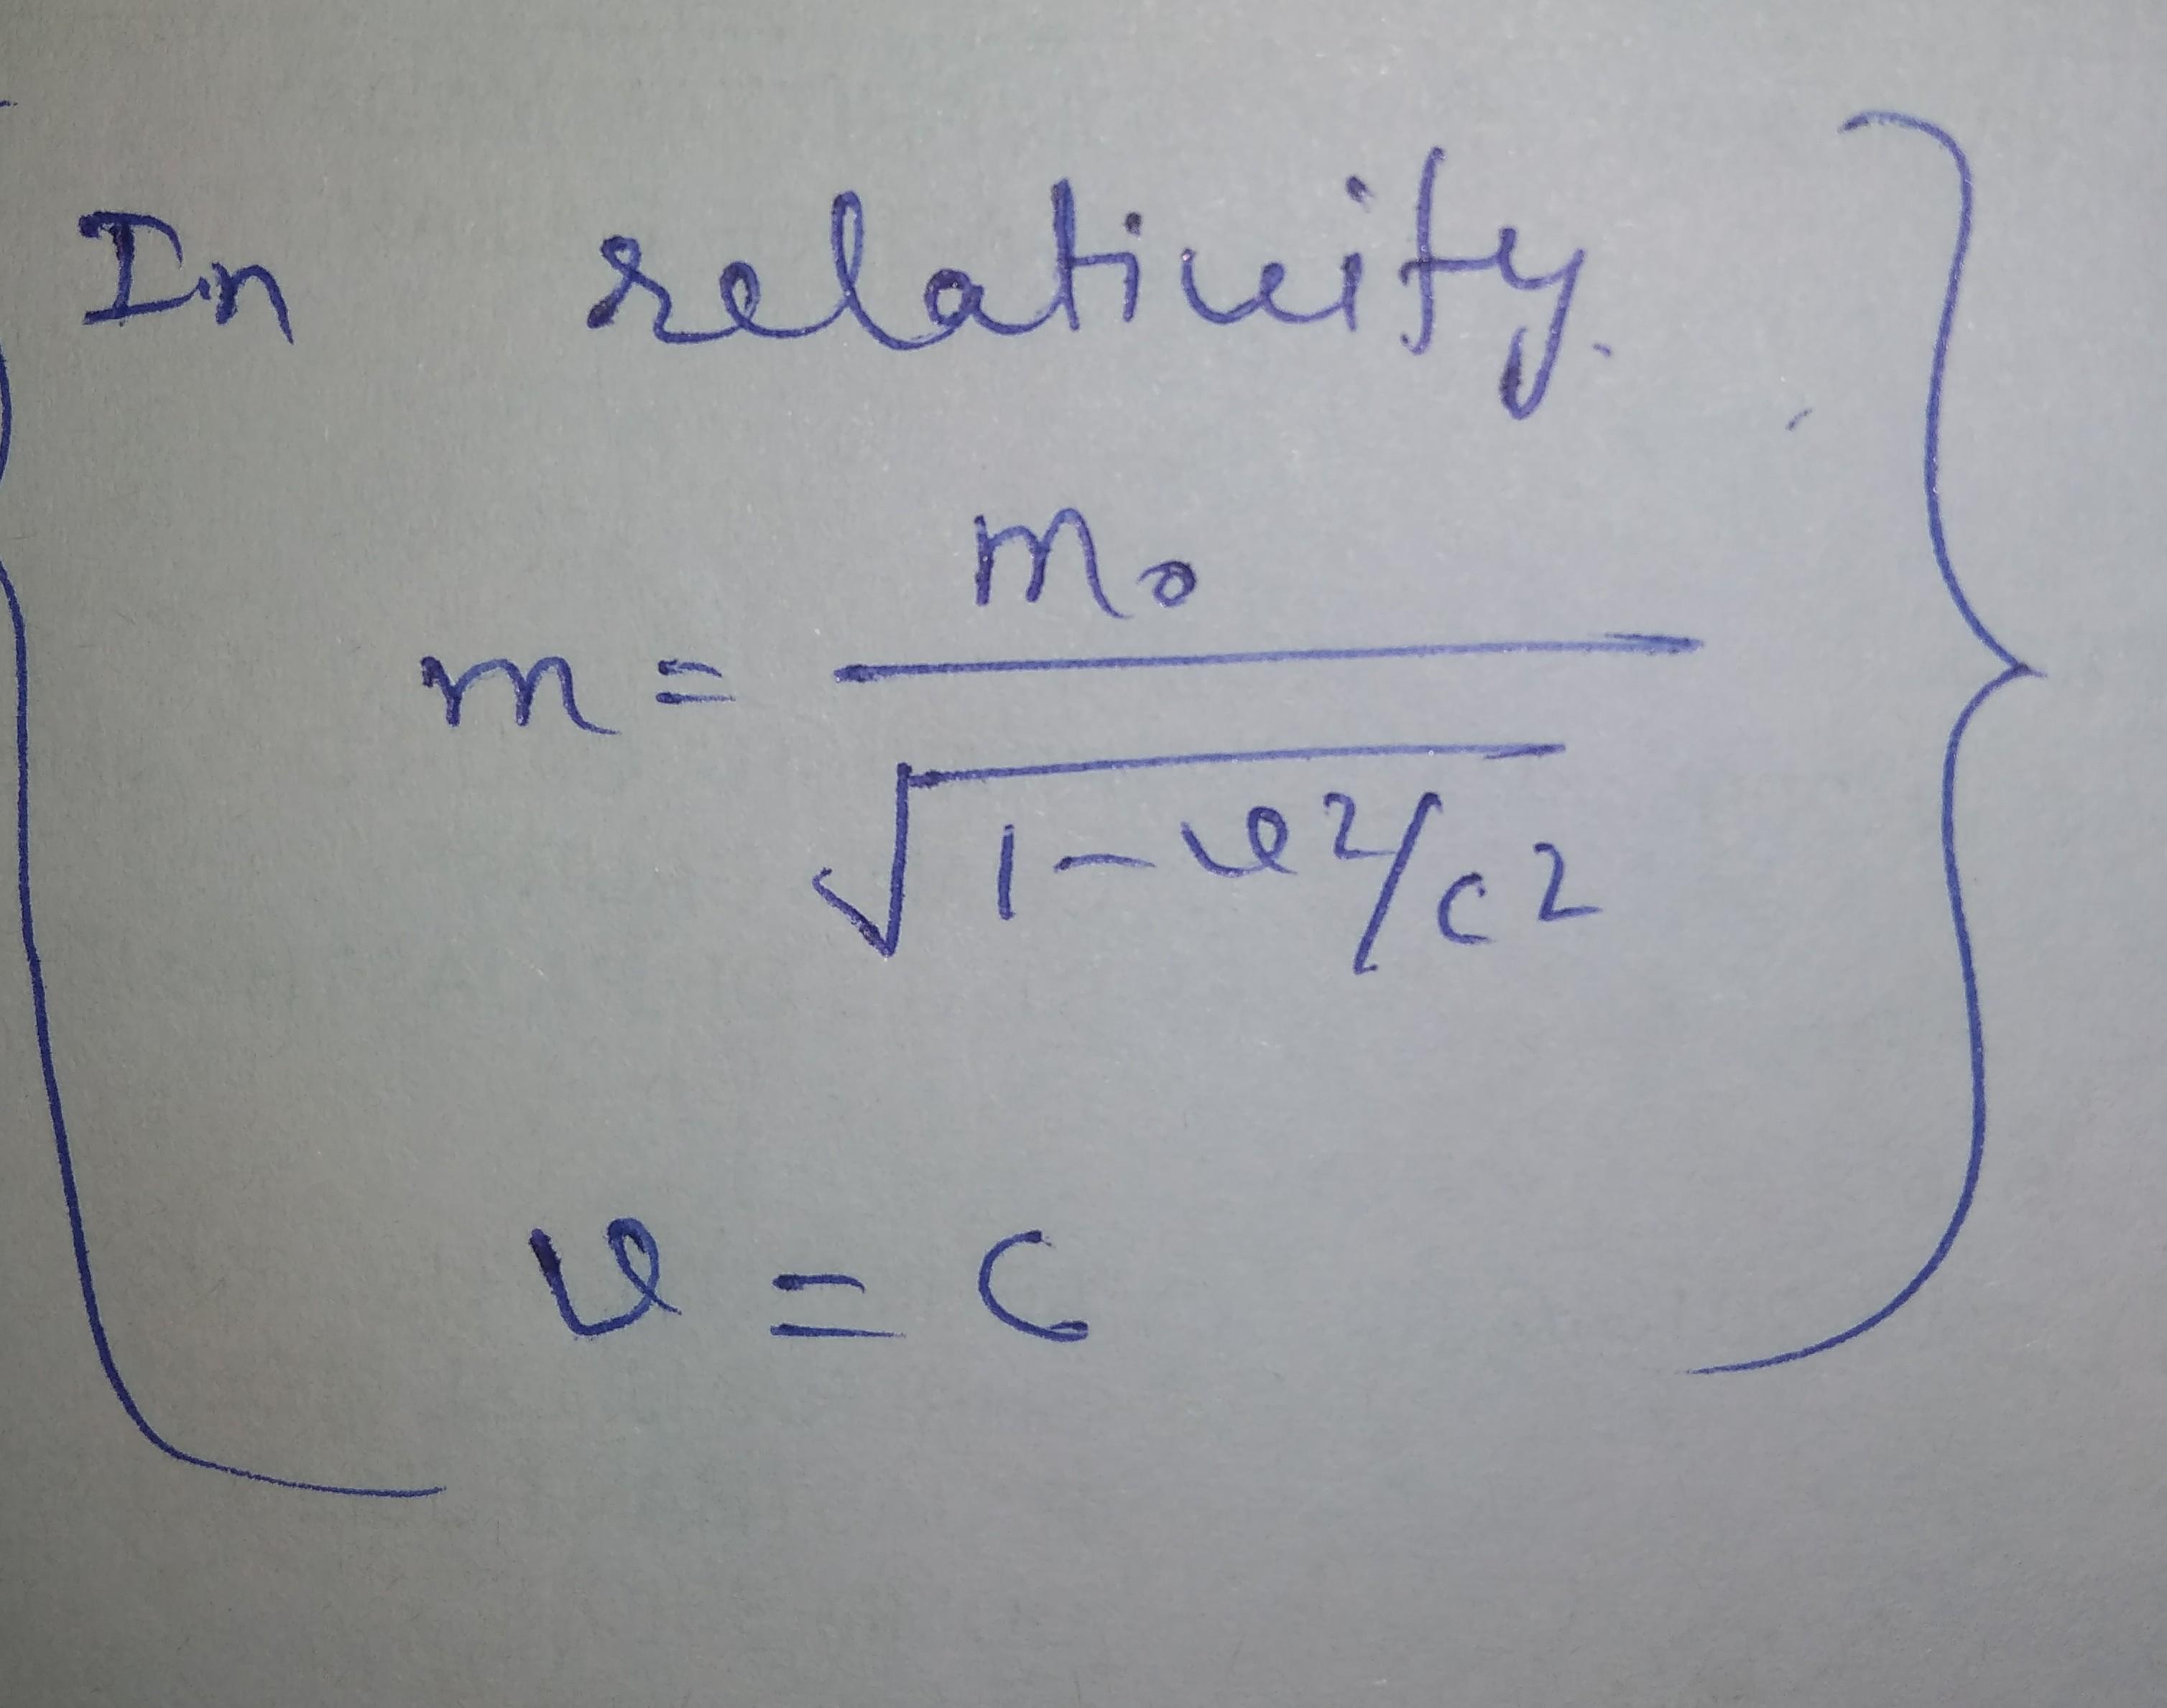 In relativity.
m = m₀
√1-v²/c²
v = c